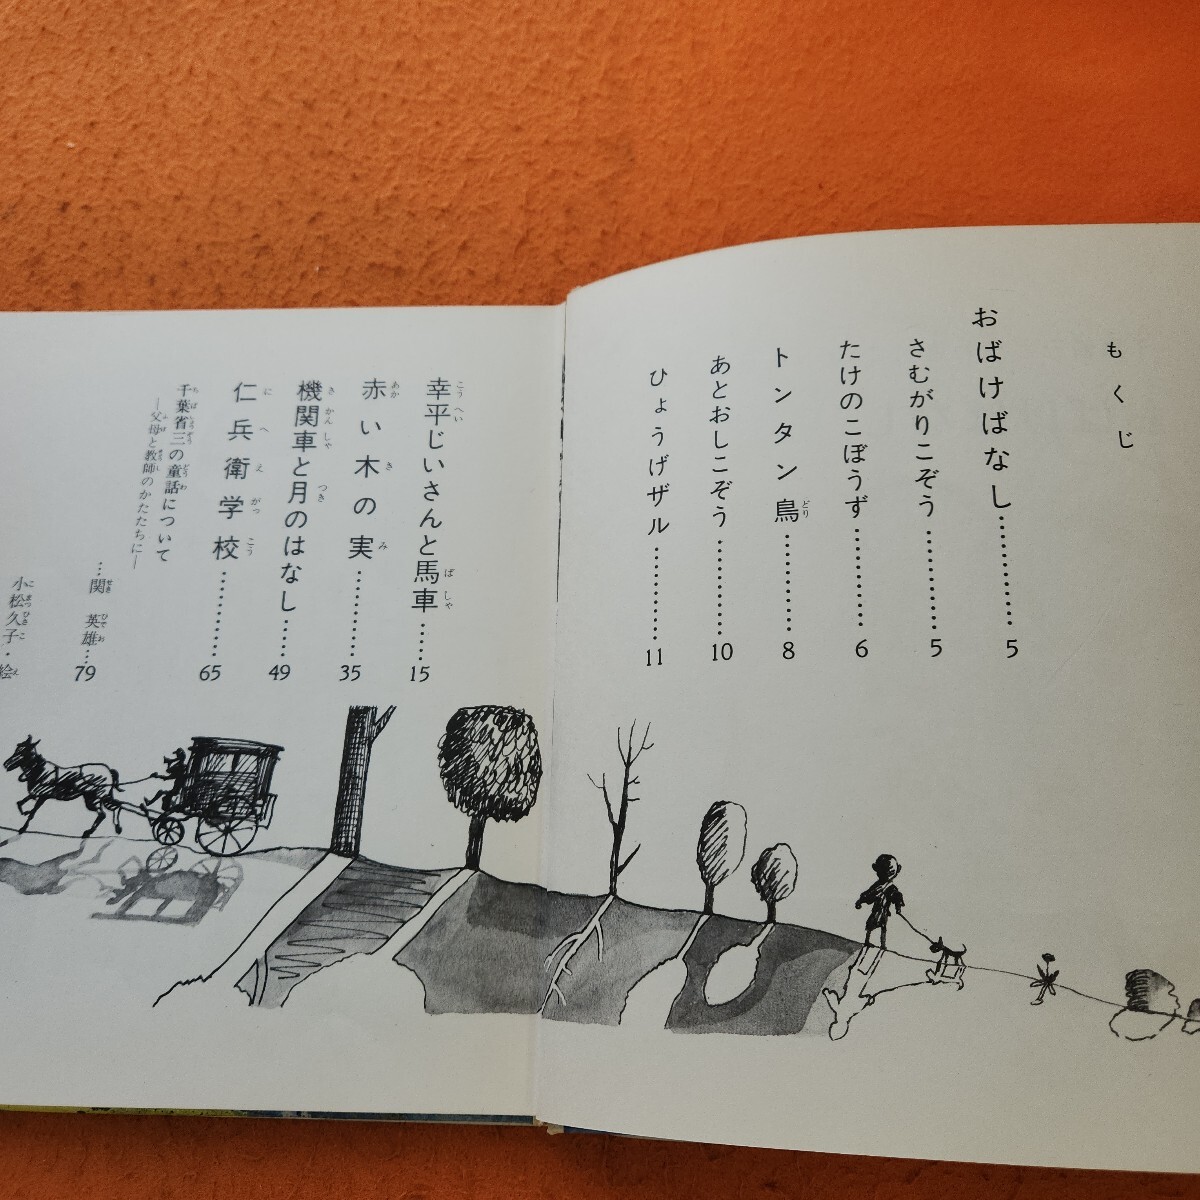 もくじ
おばけばなし…………5
さむがりこぞう…………5
たけのこぼうず…………6
トンタン鳥…………8
あとおしこぞう…………10
ひょうげザル…………11
幸平じいさんと馬車……15
赤い木の実…………35
機関車と月のはなし……49
仁兵衛学校…………65
千葉省三の童話について
―父母と教師のかたたちに―
…関 英雄…79
小松久子・絵